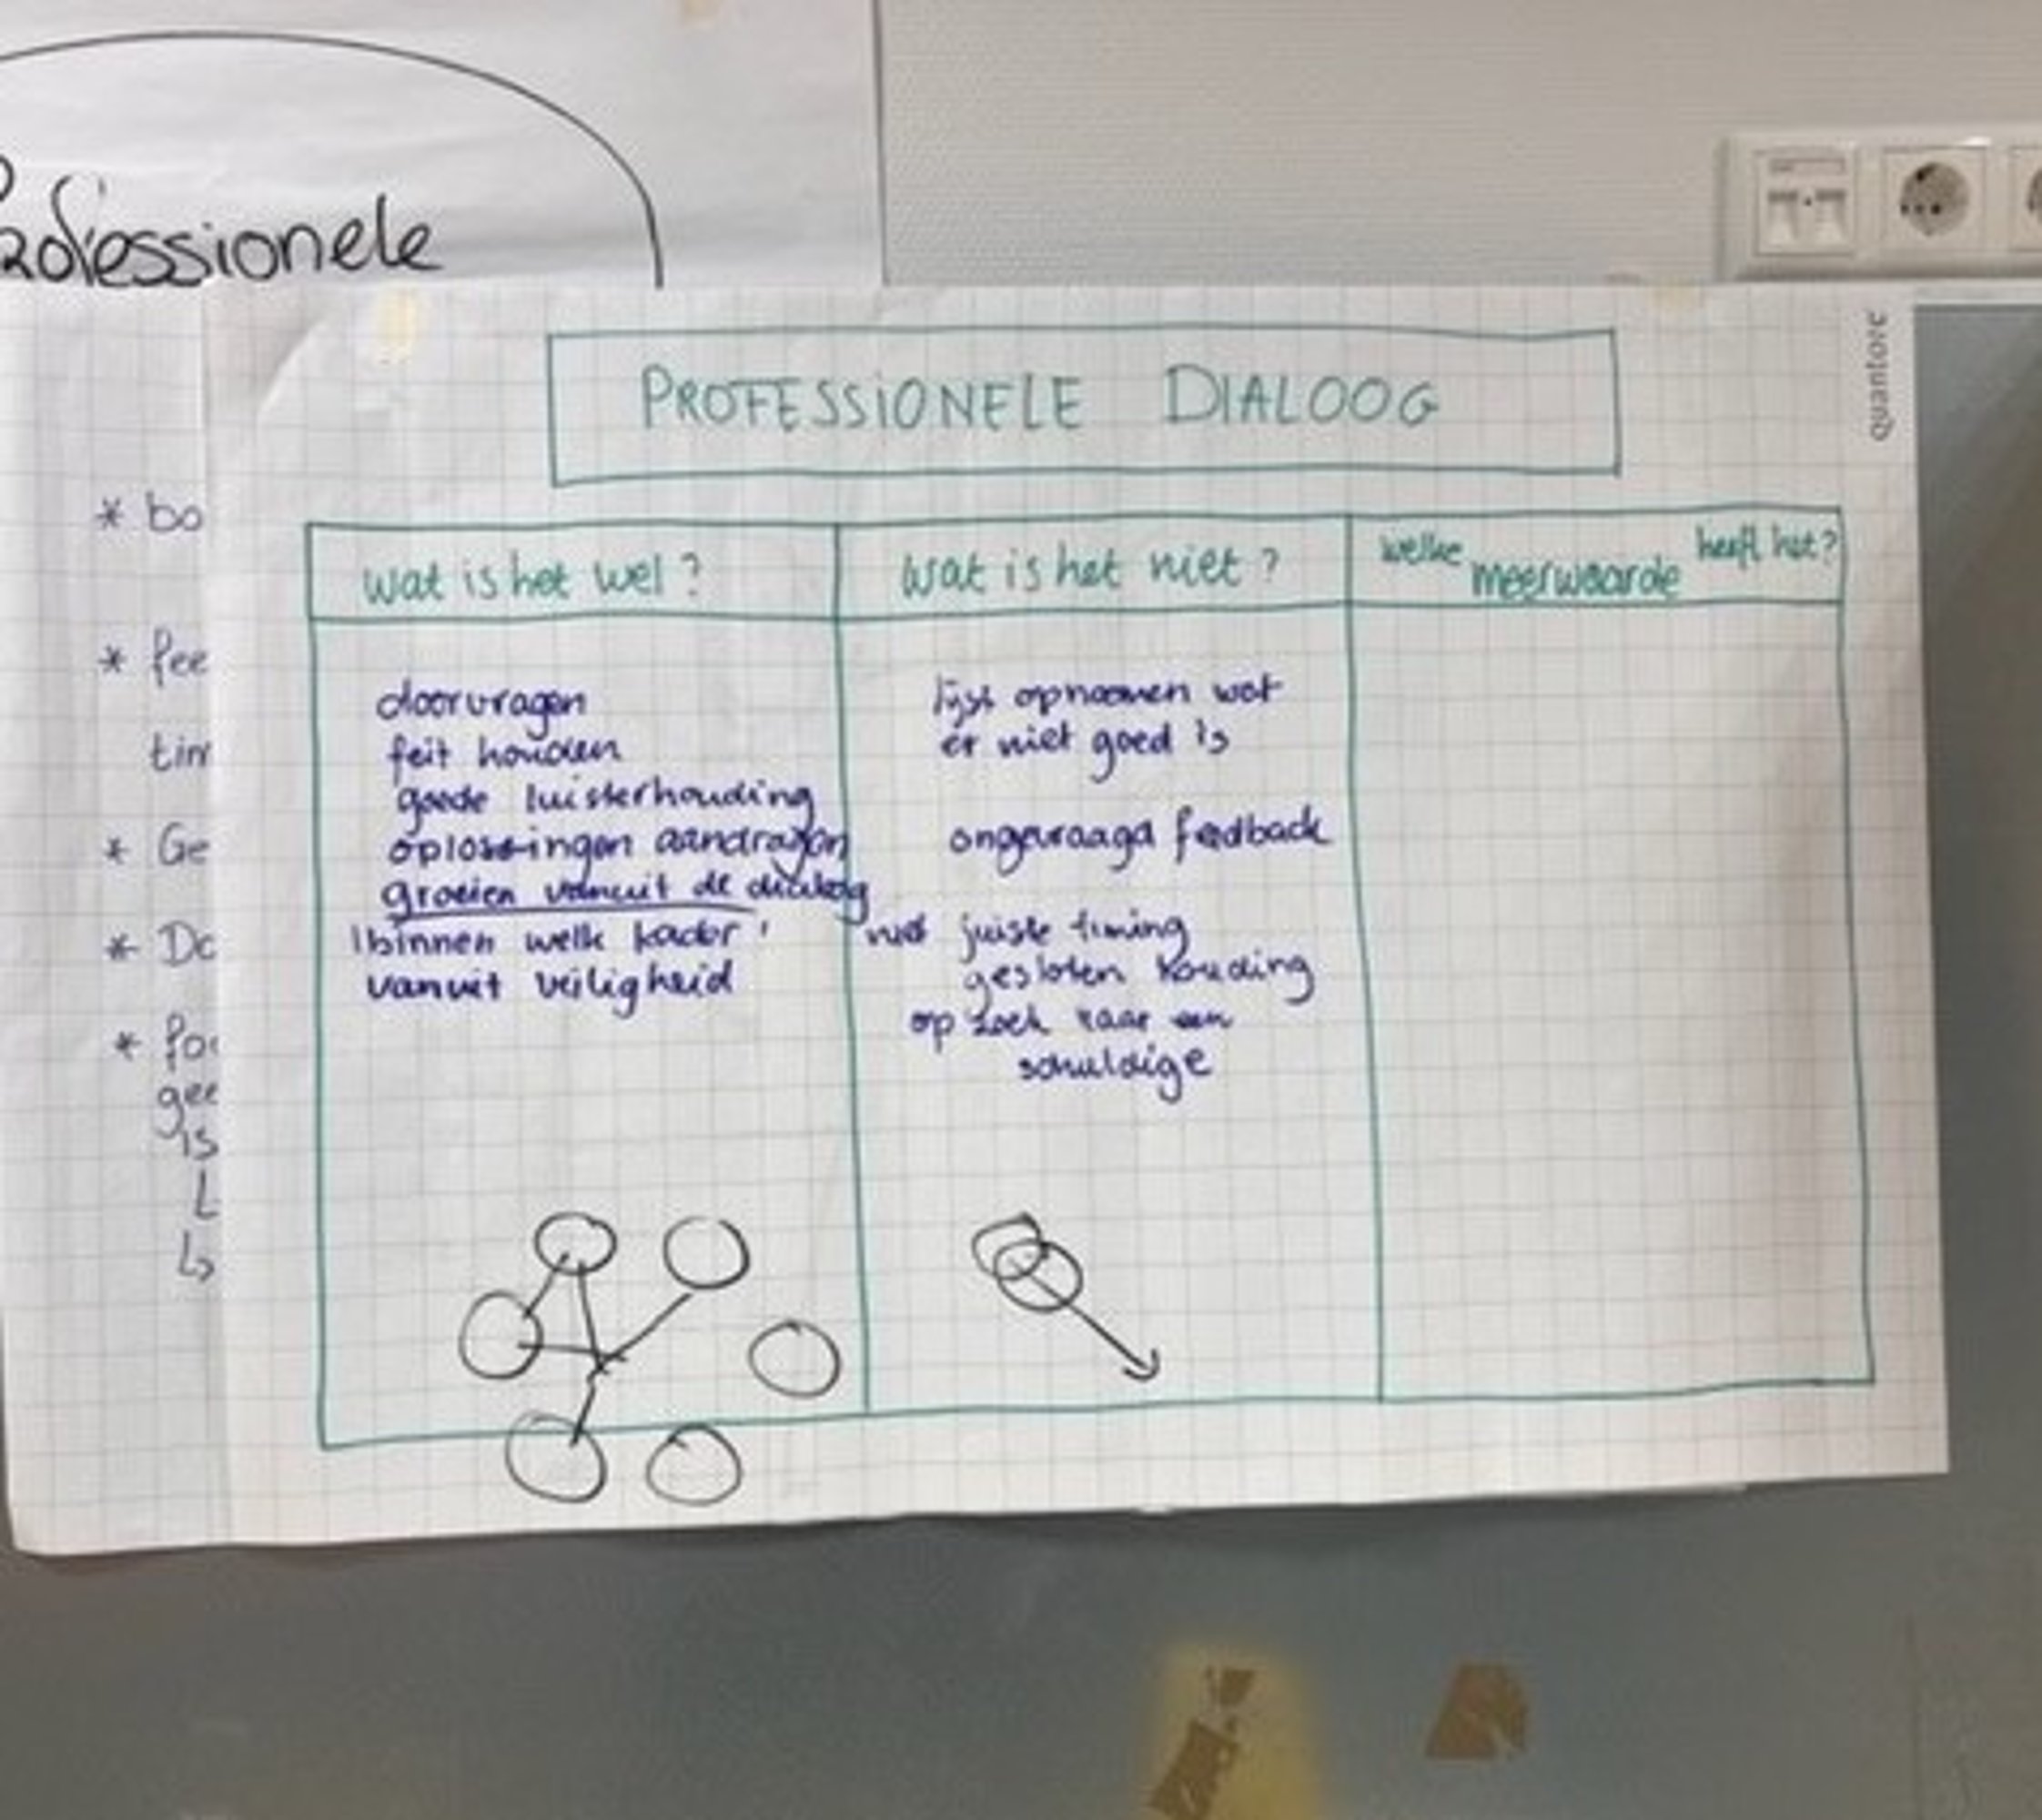 Professionele
* bo
* fee
tim
* Ge
* Do
* fo
gee
is
quantore
PROFESSIONELE DIALOOG
wat is het wel?
doorvragen
feit houden
goede luisterhouding
oplossingen aandragen
groeien vanuit de dialoog
'binnen welk kader'
vanuit veiligheid
wat is het niet?
lijst opnoemen wat
er niet goed is
ongevraagd feedback
niet juiste timing
gesloten houding
op zoek naar een
schuldige
welke meerwaarde heeft het?